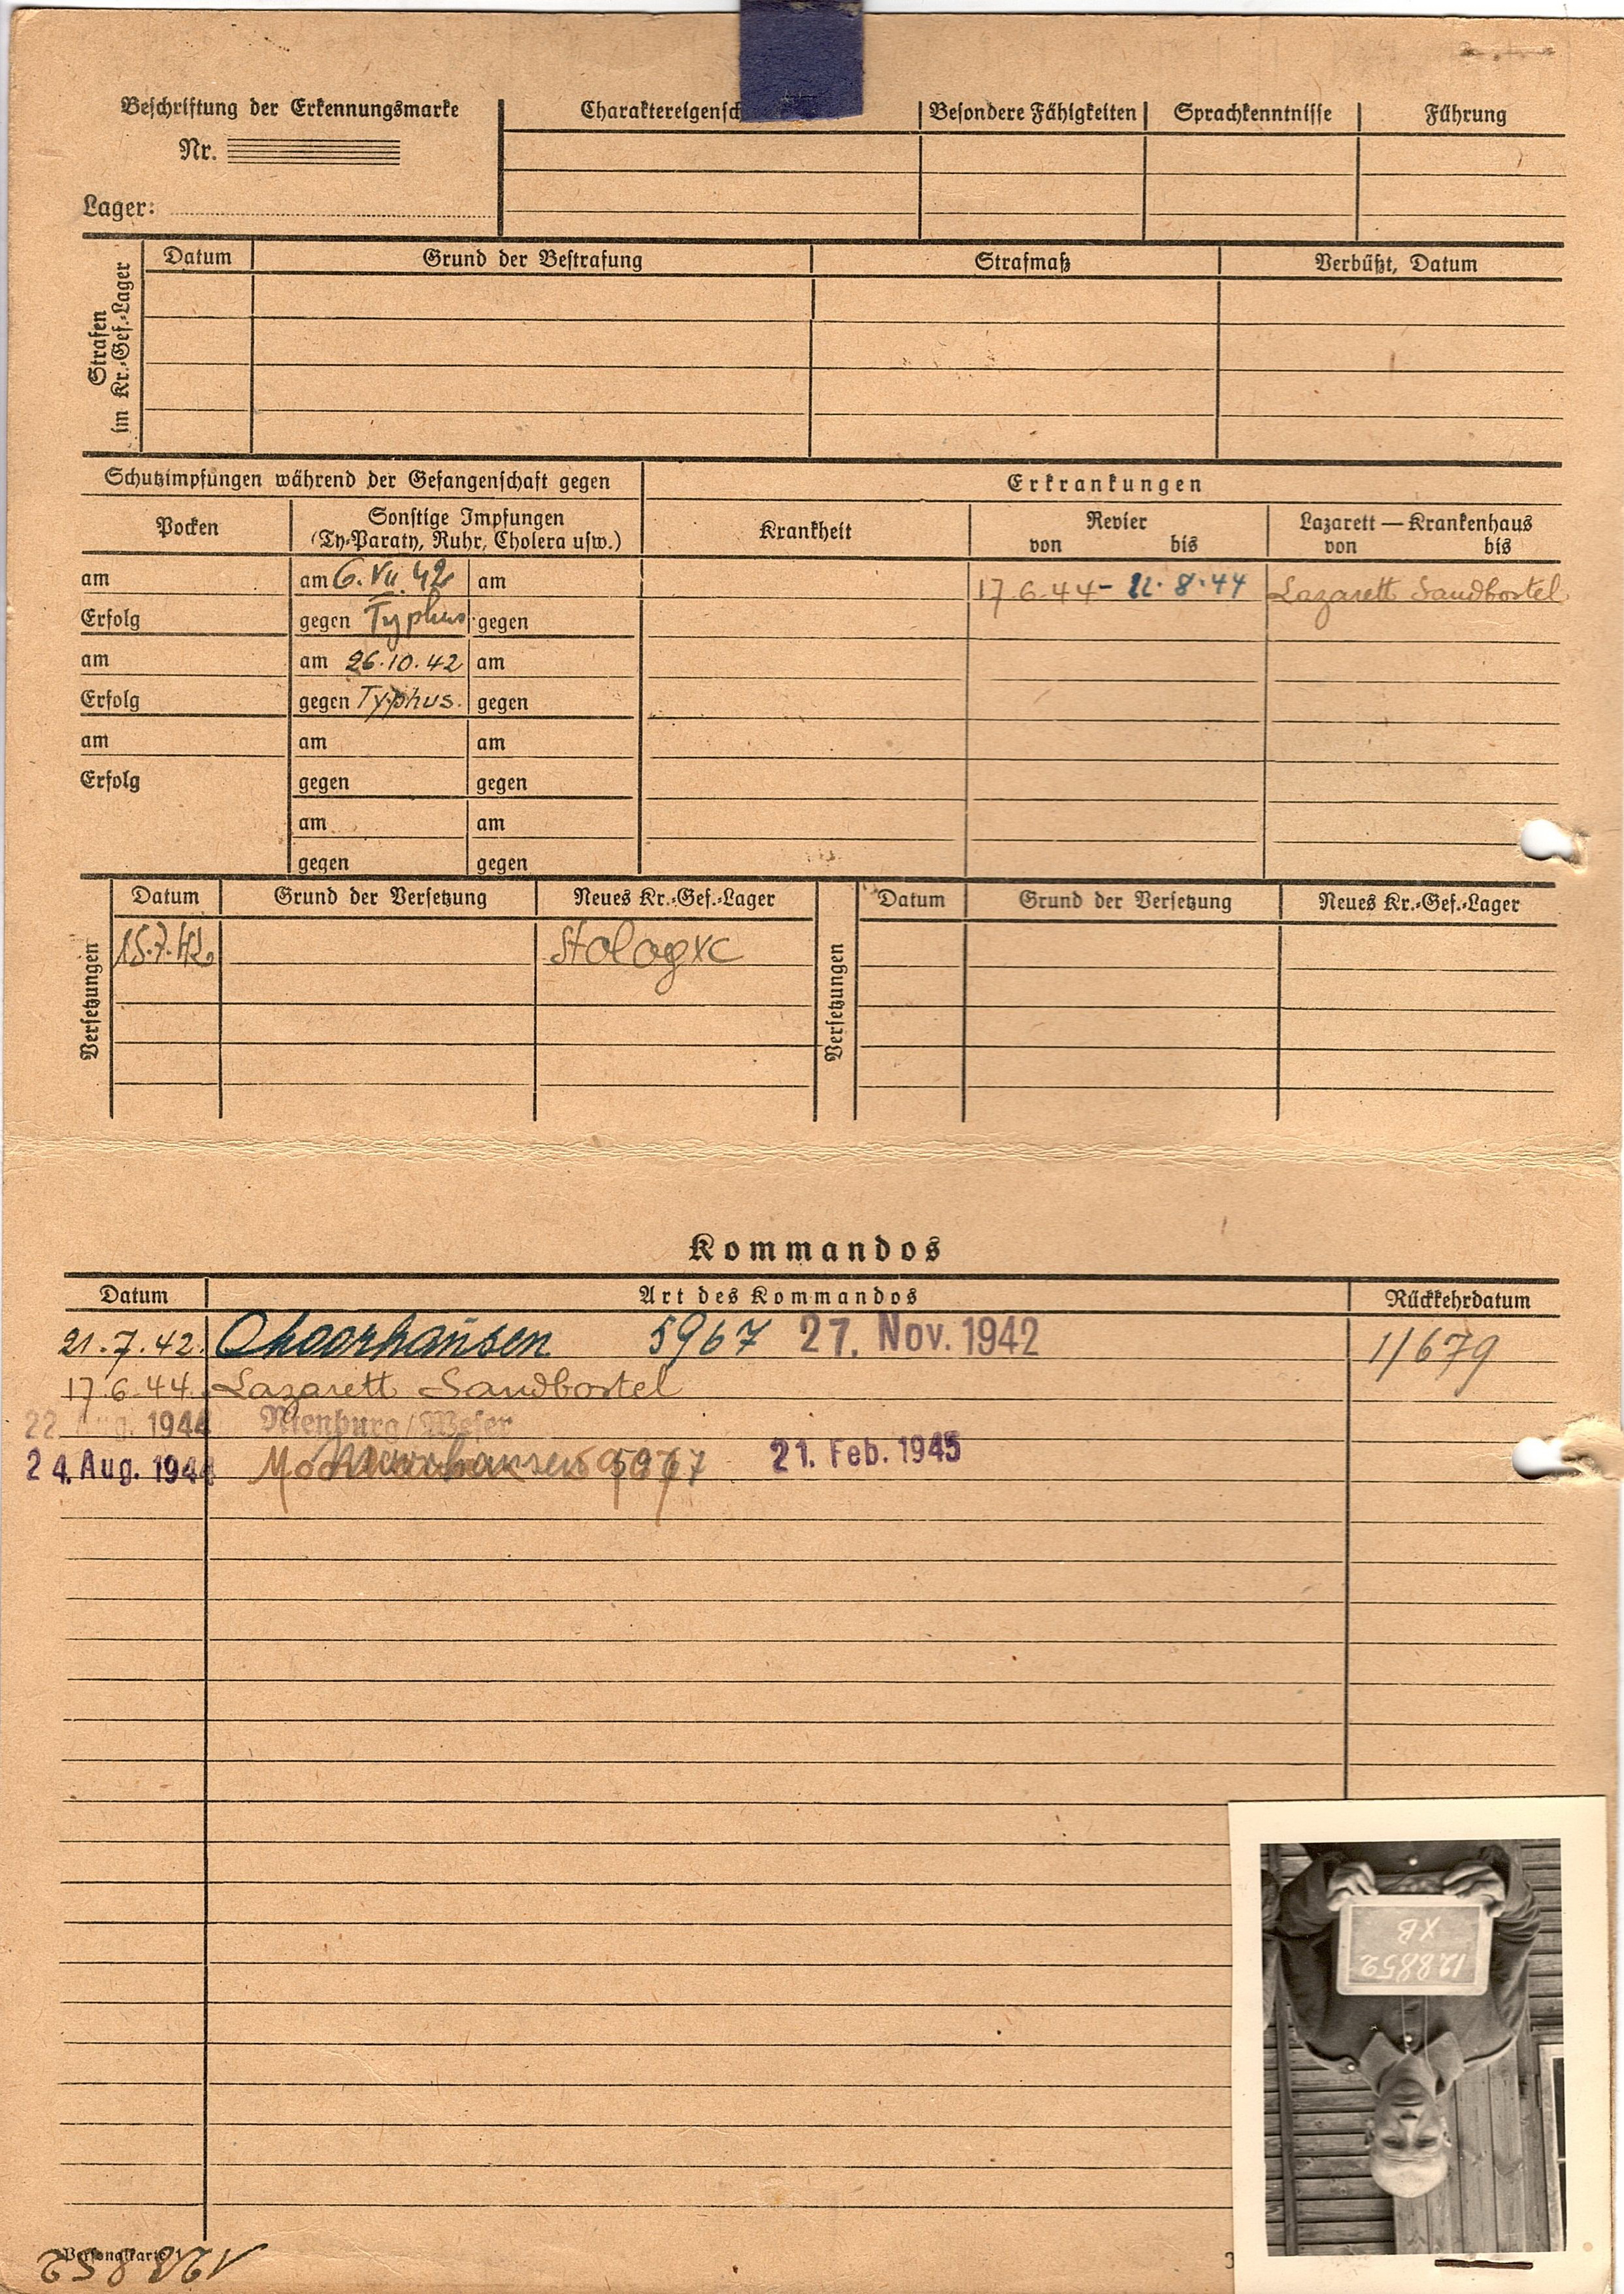 Beschriftung der Erkennungsmarke
Nr.
Lager:
Charaktereigensch
Besondere Fähigkeiten
Sprachkenntnisse
Führung
Strafen
im Kr.-Gef.-Lager
Datum Grund der Bestrafung Strafmaß Verbüßt, Datum
Schutzimpfungen während der Gefangenschaft gegen
Erkrankungen
Pocken
Sonstige Impfungen
(Ty-Paraty, Ruhr, Cholera usw.)
Krankheit
Revier
von bis
Lazarett — Krankenhaus
von bis
am am 6. VII. 42 am 17.6.44 - 22.8.44 Lazarett Sandbostel
Erfolg gegen Typhus gegen
am am 26.10.42 am
Erfolg gegen Typhus. gegen
am am am
Erfolg gegen gegen
am am
gegen gegen
Versetzungen
Datum Grund der Versetzung Neues Kr.-Gef.-Lager
15.7.42 Stalag XC
Versetzungen
Datum Grund der Versetzung Neues Kr.-Gef.-Lager
Kommandos
Datum Art des Kommandos Rückkehrdatum
21.7.42. 5967 27. Nov. 1942 1/679
17.6.44. Lazarett Sandbostel
22. Aug. 1944 Nienburg/Weser
24. Aug. 1944 21. Feb. 1945
128852
XB
Personalkarte 1
128852
3